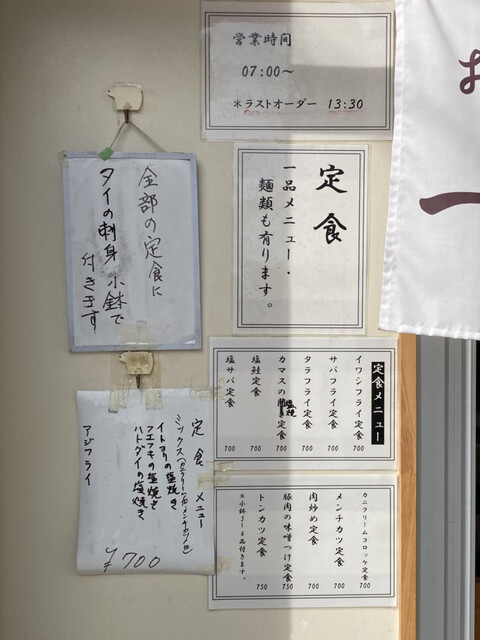 営業時間
07:00～
＊ラストオーダー 13:30
定食
一品メニュー・
麺類も有ります。
全部の定食に
タイの刺身 小鉢で
付きます
定食メニュー
イワシフライ定食 700
サバフライ定食 700
タラフライ定食 700
カマスの塩焼定食 700
塩鮭定食 700
塩サバ定食 700
カニクリームコロッケ定食 700
メンチカツ定食 700
肉炒め定食 700
豚肉の味噌つけ定食 750
トンカツ定食 750
＊小鉢3～4品付きます。
定食メニュー
ミックス(カニクリーム
イトヨリの塩焼き
フエフキの塩焼き
ハトダイの塩焼き
アジフライ
¥700
お
一